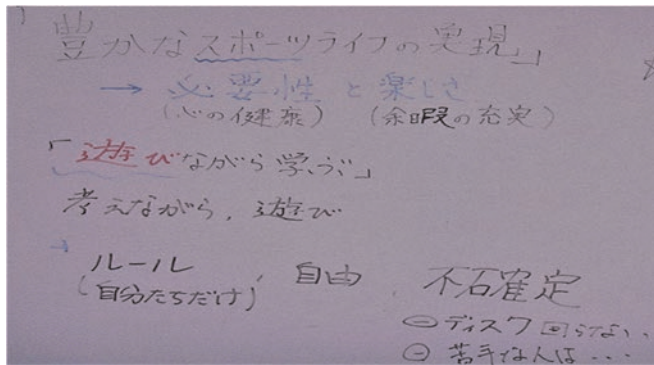 「豊かなスポーツライフの実現」
→ 必要性と楽しさ
(心の健康) (余暇の充実)
「遊びながら学ぶ」
考えながら、遊び
→
ルール , 自由 , 不確定
(自分たちだけ)
⊖ ディスク回らない、
⊖ 苦手な人は・・・